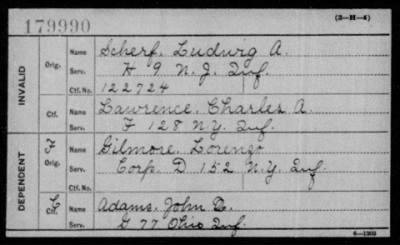 179990
(3—H—4)
INVALID
Orig. Name Scherf, Ludwig A.
Serv. H 9 N. J. Inf.
Ctf. No. 122724
Ctf. Name Lawrence, Charles A.
Serv. F 128 N.Y. Inf.
DEPENDENT
Orig. Name Gilmore, Lorenzo
Serv. Corp. D 152 N.Y. Inf.
Ctf. Name Adams, John
Serv. G 77 Ohio Inf.